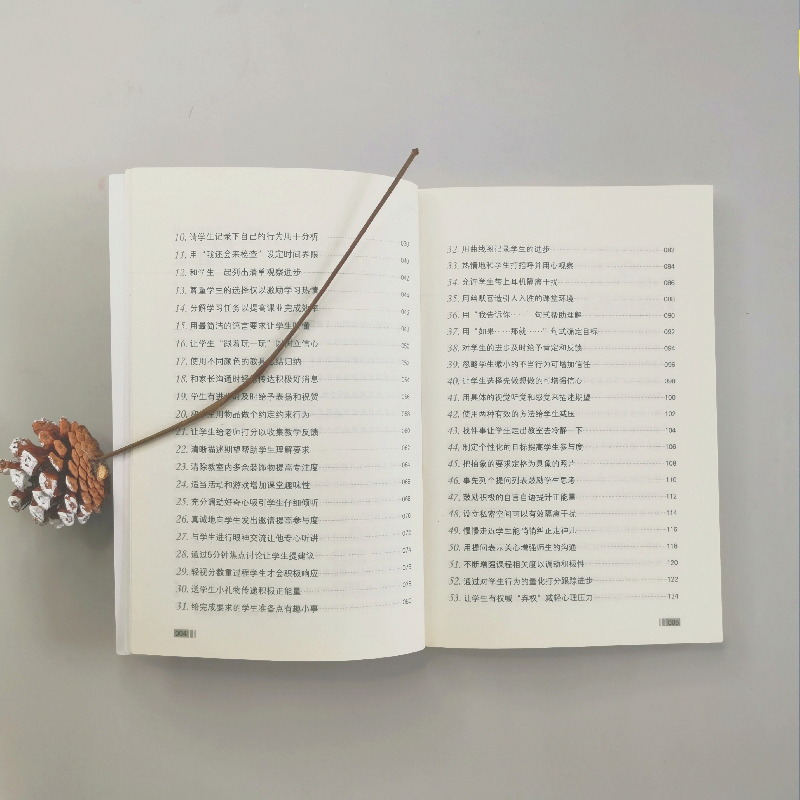 10. 请学生记录下自己的行为用于分析 038
11. 用“我还会来检查”设定时间界限 040
12. 和学生一起列出清单观察进步 042
13. 尊重学生的选择权以激励学习热情 044
14. 分解学习任务以提高课业完成效率
15. 用最简洁的语言要求让学生 048
16. 让学生“跟着玩一玩” 树立信心 050
17. 使用不同颜色的教具 归纳
18. 和家长沟通时 传达积极好消息
19. 学生有进步时及时给予表扬和祝贺
20. 用物品做个约定约束行为
21. 让学生给老师打分以收集教学反馈 060
22. 清晰描述期望帮助学生理解要求 062
23. 清除教室内多余装饰物提高专注度 064
24. 适当活动和游戏增加课堂趣味性 066
25. 充分调动好奇心吸引学生仔细倾听 068
26. 真诚地向学生发出邀请提高参与度 070
27. 与学生进行眼神交流让他专心听讲 072
28. 通过5分钟焦点讨论让学生提建议 074
29. 轻视分数重过程学生才会积极响应 076
30. 送学生小礼物传递积极正能量 078
31. 给完成要求的学生准备点有趣小事 080
004
32. 用曲线图记录学生的进步 082
33. 热情地和学生打招呼并用心观察 084
34. 允许学生带上耳机隔离干扰 086
35. 用幽默营造引人入胜的课堂环境 088
36. 用“我告诉你……”句式帮助理解 090
37. 用“如果……那就……”句式确定目标 092
38. 对学生的进步及时给予肯定和反馈 094
39. 忽略学生微小的不当行为可增加信任 096
40. 让学生选择先做想做的可增强信心 098
41. 用具体的视觉听觉和感觉来描述期望 100
42. 使用两种有效的方法给学生减压 102
43. 找件事让学生走出教室去冷静一下 104
44. 制定个性化的目标提高学生参与度 106
45. 把抽象的要求定格为具像的照片 108
46. 事先列个提问列表鼓励学生思考 110
47. 鼓励积极的自言自语提升正能量 112
48. 设立私密空间可以有效隔离干扰 114
49. 慢慢走近学生能悄悄纠正走神儿 116
50. 用提问表示关心增强师生的沟通 118
51. 不断增强课程相关度以调动积极性 120
52. 通过对学生行为的量化打分跟踪进步 122
53. 让学生有权喊“弃权”减轻心理压力 124
005